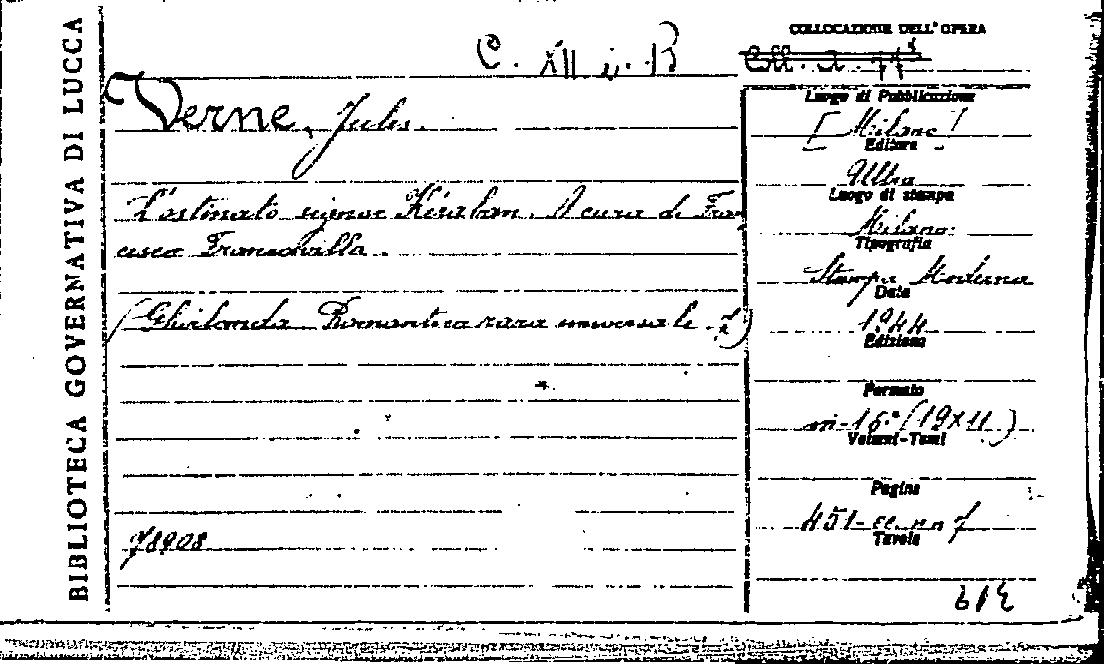 BIBLIOTECA GOVERNATIVA DI LUCCA
C. XII i. 13
COLLOCAZIONE DELL'OPERA
Coll.
Verne, Jules.
L'ostinato signor Kéraban. A cura di Fran
cesco Francavilla.
(Ghirlanda Romantica rara universale. 7)
78908
Luogo di Pubblicazione
[Milano]
Editore
Ultra
Luogo di stampa
Milano
Tipografia
Stampa Moderna
Data
1944
Edizione
Formato
in-16.° (19x11)
Volumi-Tomi
Pagine
451-cc. nn
Tavole